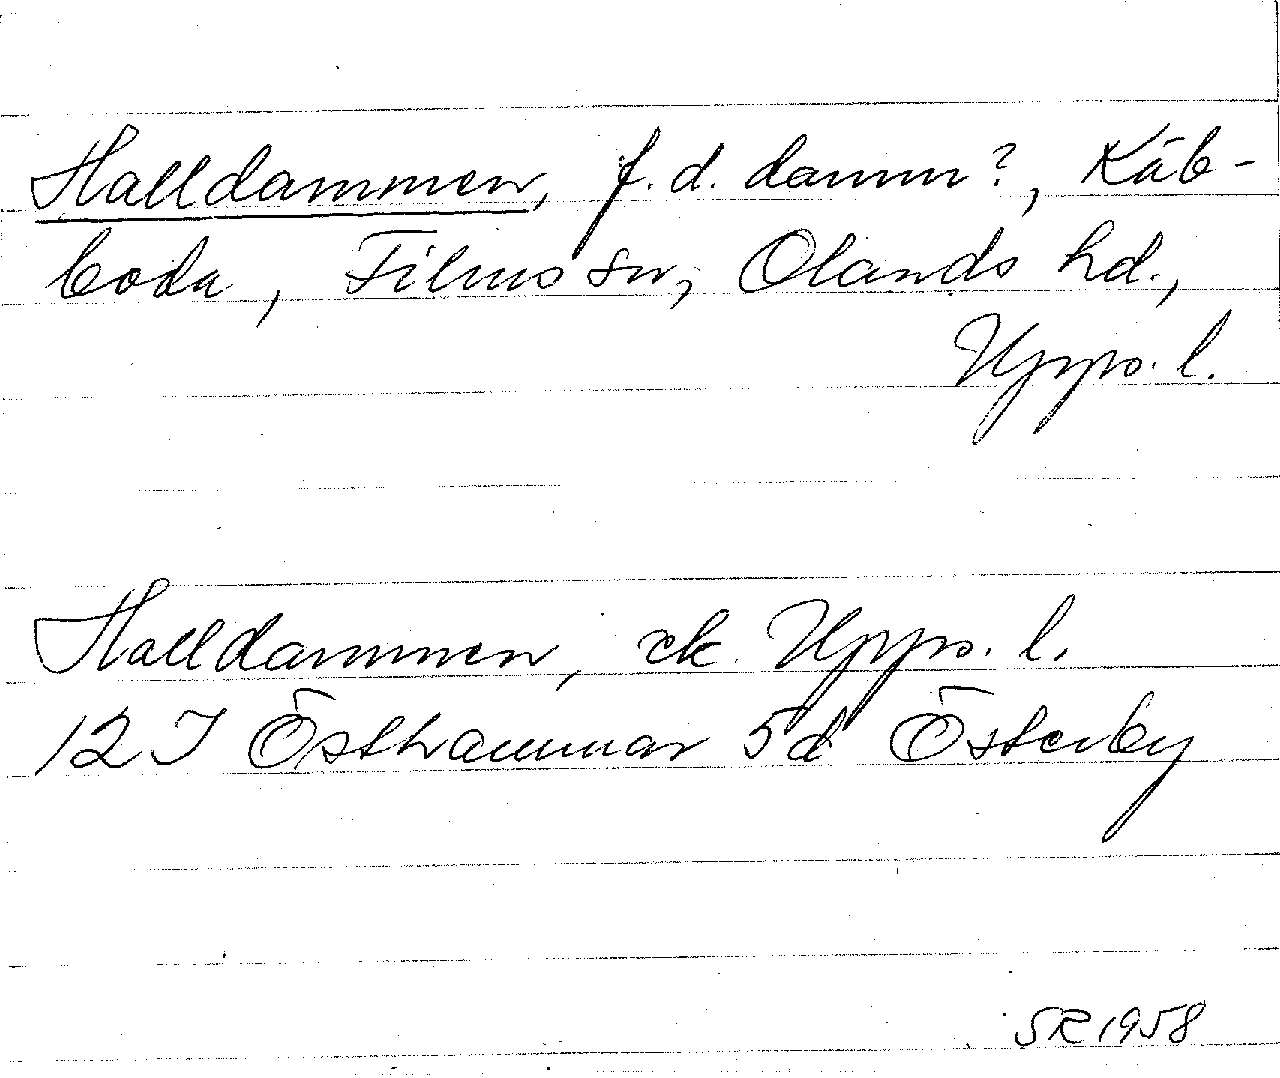 Halldammen, f.d. damm?, Käb-
boda, Films sn, Olands hd.,
Upps. l.
Halldammen, ek. Upps. l.
12 I Östhammar 5d Österby
SR 1958